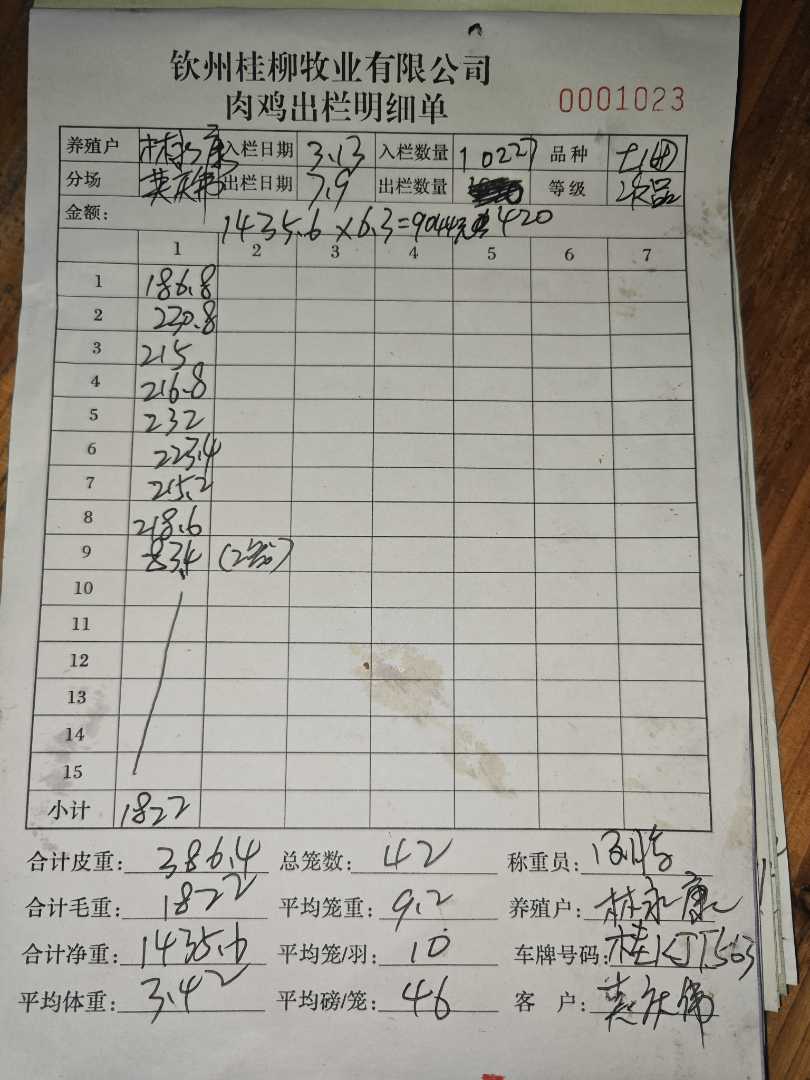 钦州桂柳牧业有限公司
肉鸡出栏明细单 0001023
养殖户 林永康 入栏日期 3.13 入栏数量 10227 品种
分场 出栏日期 7.9 出栏数量 等级 次品
金额: 1435.6×6.3=9044元 420
1 2 3 4 5 6 7
1 186.8
2 230.8
3 215
4 216.8
5 232
6 223.4
7 215.2
8 218.6
9 83.4 (2笼)
10
11
12
13
14
15
小计 1822
合计皮重: 386.4 总笼数: 42 称重员:
合计毛重: 1822 平均笼重: 9.2 养殖户: 林永康
合计净重: 1435.6 平均笼/羽: 10 车牌号码: 桂KJT563
平均体重: 3.42 平均磅/笼: 46 客 户: